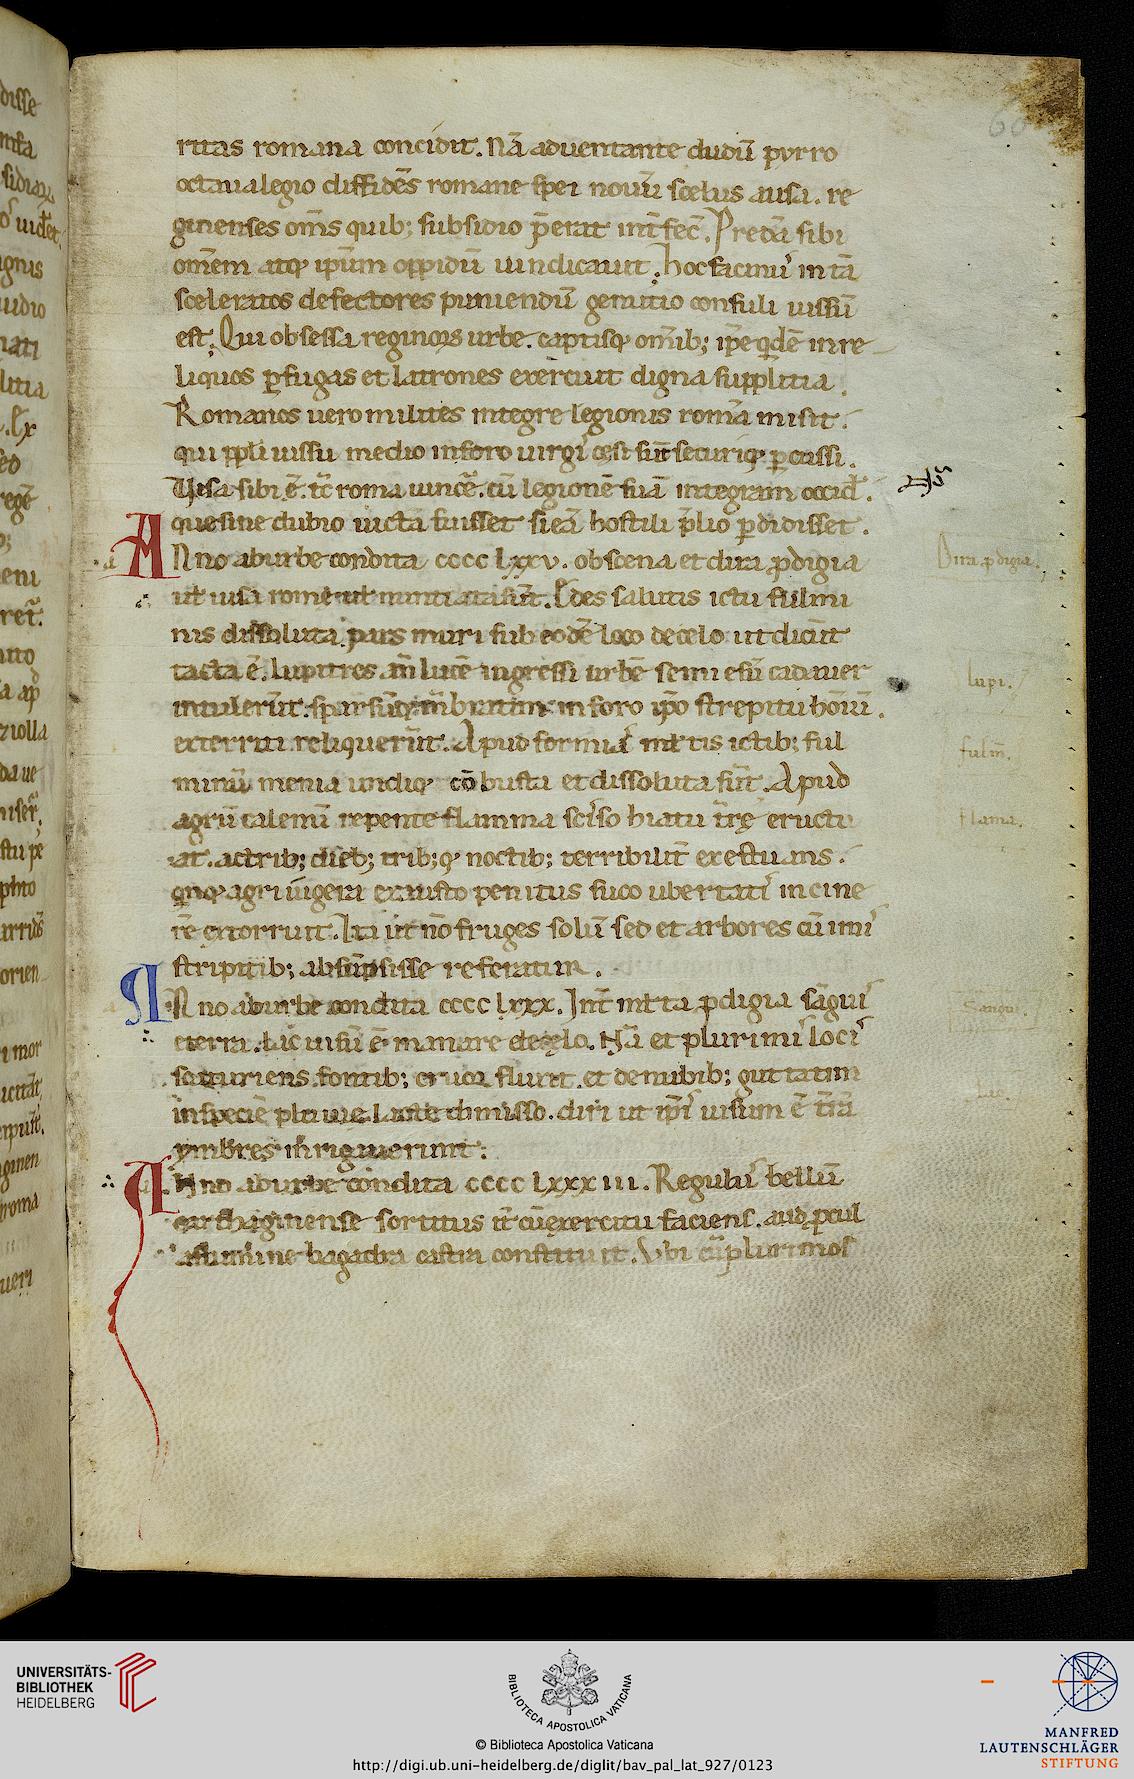 60
ritas romana concidit. Nā aduentante dudū pyrro
octaua legio diffidēs romane spei nouū scelus ausa. re
ginenses om̄s quib; subsidio p̄erat int̄fec̄. Predā sibi
om̄em atq; ip̄um oppidū uindicauit. hoc facinus in tā
sceleratos defectores puniendū genutio consuli uissū
est. Qui obsessa reginorū urbe. captisq; om̄ib; ip̄e qidē in re
liquos ꝑfugas et latrones exercuit digna supplitia.
Romanos uero milites integre legionis romā misit.
qui ppl̄i iussu medio in foro uirgis cesi sūt securiq; ꝑcussi.
Visa sibi ē. tc̄ roma uinc̄e. cū legionē suā integram occid̄.
que sine dubio uicta fuisset si eā hostili p̄lio ꝑdidisset.
Anno ab urbe condita cccc lxxv. obscena et dira ꝓdigia
uł uisa rome uł nuntiata sūt. Edes salutis ictu fulmi
nis dissoluta. pars muri sub eodē loco de celo ut dicūt
tacta ē. lupi tres an̄ lucē ingressi urbē semi esū cadauer
intulerūt. foro ip̄o strepitu hoīū.
exterriti reliquerūt. Apud formias mltis ictib; ful
minū menia undiq; cōbusta et dissoluta sūt. Apud
agrū calenū repente flamma sciso hiatu tr̄ę eructu
at. ac trib; dieb; trib;q; noctib; terribilit̄ exestuans.
qnq; agri iugera exausto penitus suco ubertatis in cine
rē extorruit. Ita ut nō fruges solū sed et arbores cū imis
stripitib; absūpsisse referatur.
Anno ab urbe condita cccc lxxx. Int̄ mlta ꝓdigia sāguis
e terra. lac uisū ē manare de celo. Nā et plurimis locis
scaturiens fontib; cruor fluxit. et de nubib; guttatim
in speciē pluuie lacte dimisso. diri ut ip̄is uisum ē tr̄ā
ymbres inriguerunt.
Anno ab urbe condita cccc lxxxiii. Regulus bellū
carthaginense sortitus it̄ cū exercitu faciens. aud ꝓcul
a flumine bagadra castra constituit. Vbi cū plurimos
Dira ꝓdigia.
lupi.
fulm̄.
flama.
Sanguis.
Lac.
UNIVERSITÄTS-
BIBLIOTHEK
HEIDELBERG
BIBLIOTECA APOSTOLICA VATICANA
© Biblioteca Apostolica Vaticana
http://digi.ub.uni-heidelberg.de/diglit/bav_pal_lat_927/0123
MANFRED
LAUTENSCHLÄGER
STIFTUNG